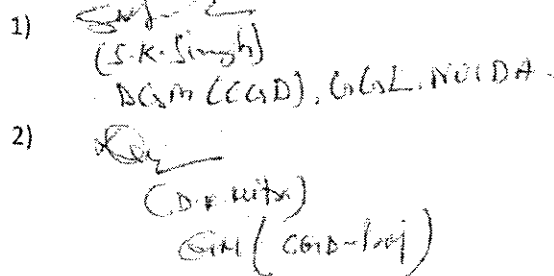 1)
(S.K. Singh)
DGM (CGD), GGL, NOIDA.
2)
GM (CGD-Proj)